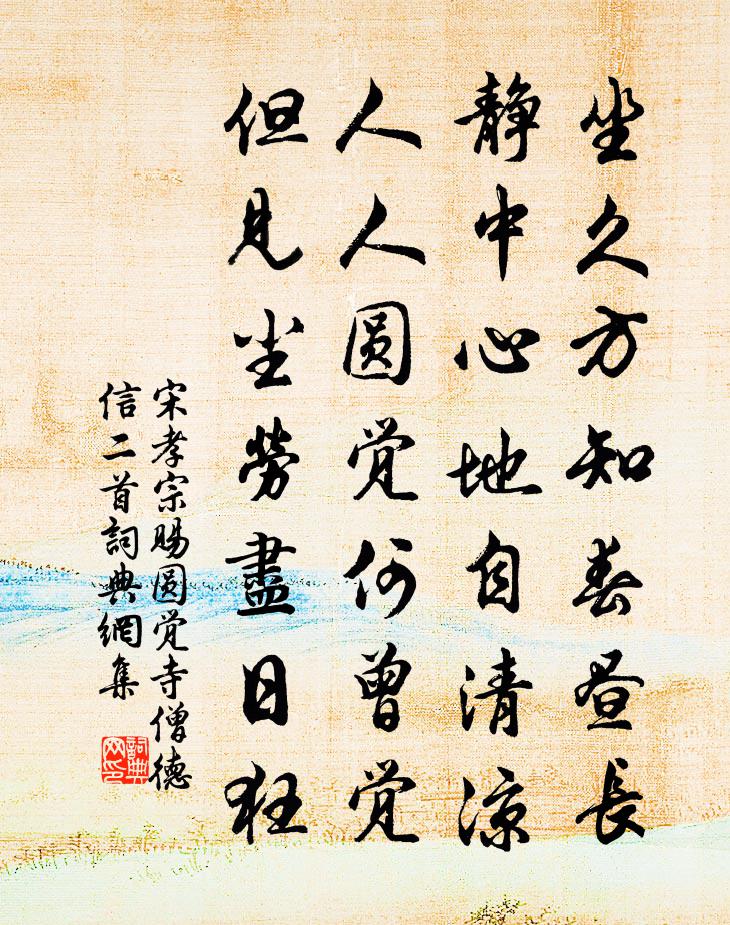 坐久方知春昼長
静中心地自清凉
人人圆觉何曾觉
但见尘勞盡日狂
宋孝宗赐圆觉寺僧德
信二首詞典網集
詞典网印